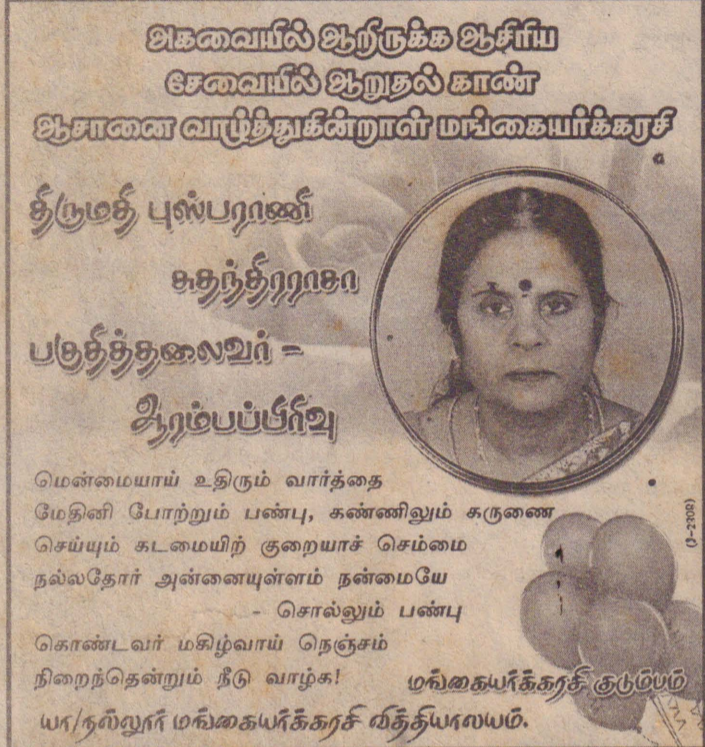 அகவையில் ஆறிருக்க ஆசிரிய
சேவையில் ஆறுதல் காண்
ஆசானை வாழ்த்துகின்றாள் மங்கையர்க்கரசி
திருமதி புஸ்பராணி
சுதந்திரராசா
பகுதித்தலைவர் –
ஆரம்பப்பிரிவு
மென்மையாய் உதிரும் வார்த்தை
மேதினி போற்றும் பண்பு, கண்ணிலும் கருணை
செய்யும் கடமையிற் குறையாச் செம்மை
நல்லதோர் அன்னையுள்ளம் நன்மையே
- சொல்லும் பண்பு
கொண்டவர் மகிழ்வாய் நெஞ்சம்
நிறைந்தென்றும் நீடு வாழ்க!
மங்கையர்க்கரசி குடும்பம்
யா/நல்லூர் மங்கையர்க்கரசி வித்தியாலயம்.